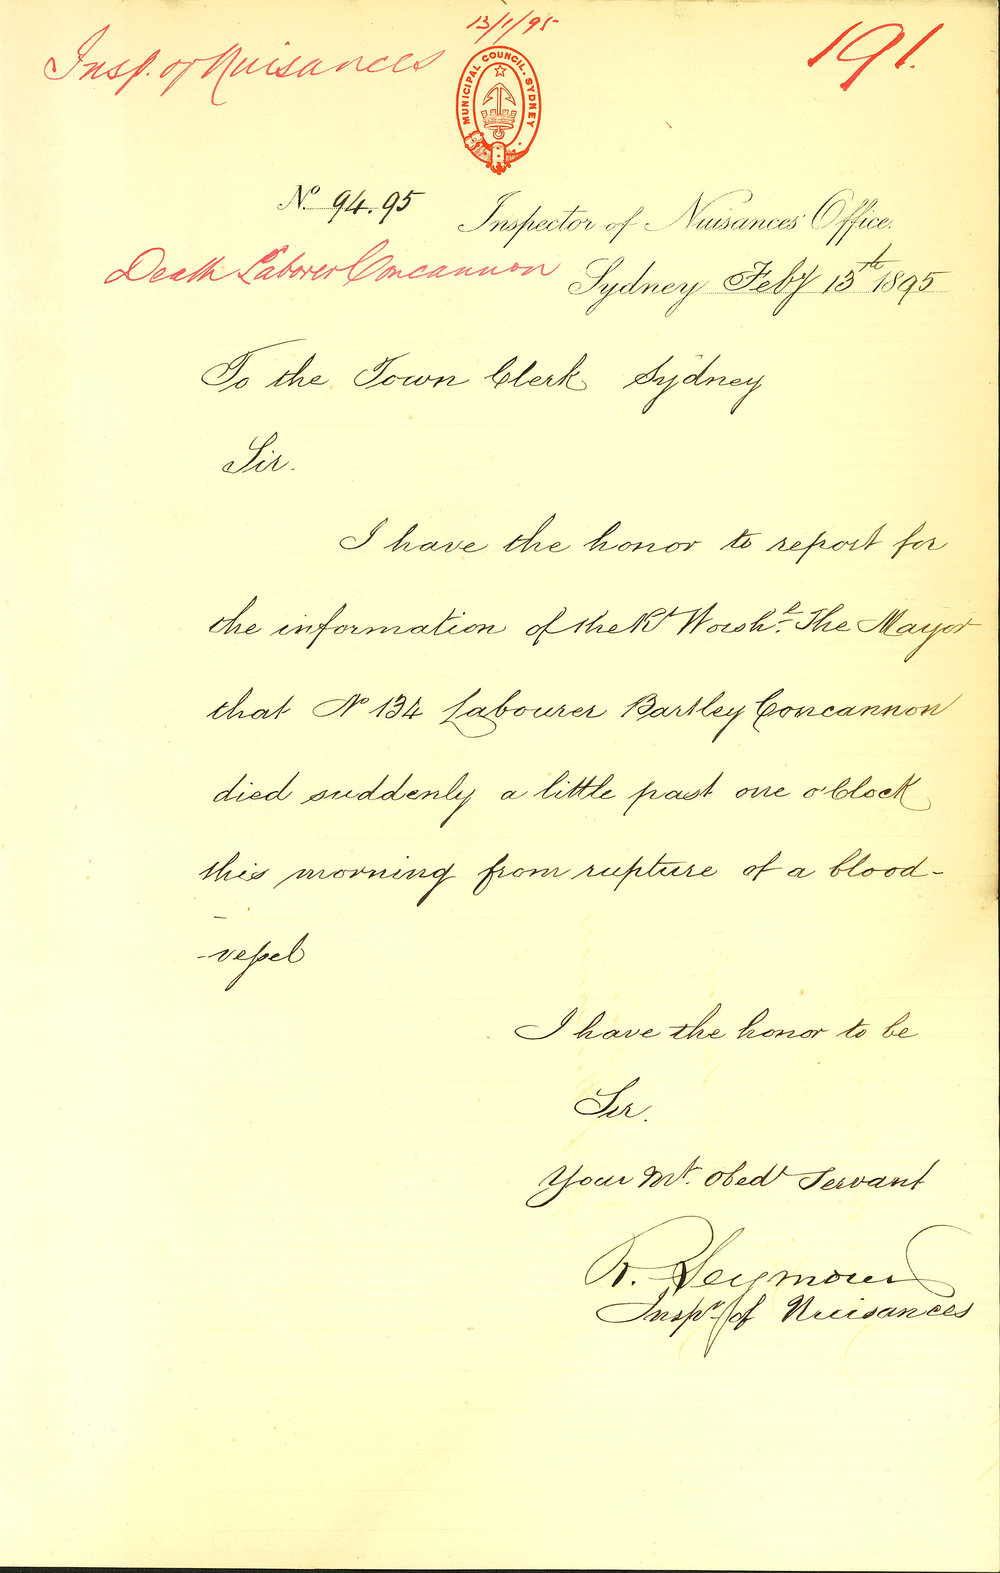 13/1/95
Insp. of Nuisances
191.
MUNICIPAL COUNCIL. SYDNEY
No. 94.95
Inspector of Nuisances' Office.
Death Laborer Concannon
Sydney Feby 13th 1895
To the Town Clerk Sydney
Sir.
I have the honor to report for
the information of the Rt Worshl. The Mayor
that No 134 Labourer Bartley Concannon
died suddenly a little past one o'Clock
this morning from rupture of a blood-
-vessel
I have the honor to be
Sir.
Your Mt. Obedt Servant
R. Seymour
Inspr. of Nuisances